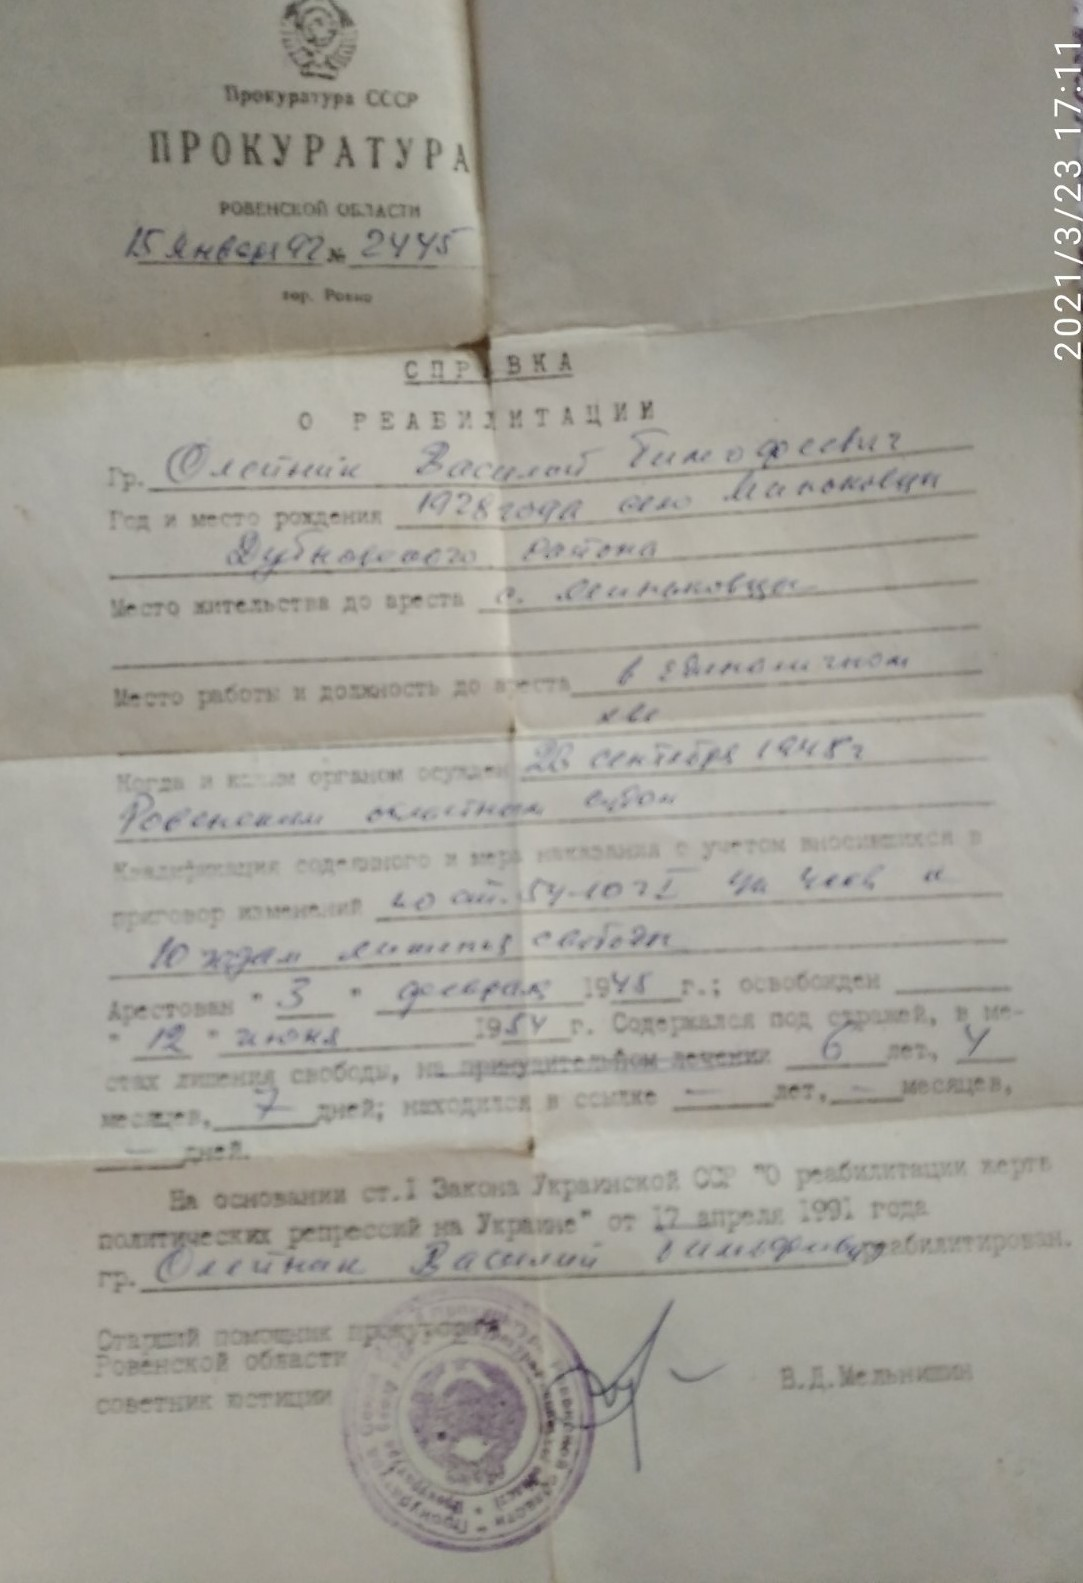 Прокуратура СССР
ПРОКУРАТУРА
РОВЕНСКОЙ ОБЛАСТИ
15 января 92 № 2445
гор. Ровно
СПРАВКА
О РЕАБИЛИТАЦИИ
Гр. Олейник Василий Тимофеевич
Год и место рождения 1928 года село
Дубновского района
Место жительства до ареста с.
Место работы и должность до ареста в единоличном
х-ве
Когда и каким органом осужден 28 сентября 1948 г
Ровенским областным судом
Квалификация содеянного и мера наказания с учетом вносившихся в
приговор изменений по ст. 54-10 ч I УК УССР к
10 годам лишения свободы
Арестован " 3 " февраля 1948 г.; освобожден
" 12 " июня 1954 г. Содержался под стражей, в ме-
стах лишения свободы, на принудительном лечении 6 лет, 4
месяцев, 7 дней; находился в ссылке — лет, — месяцев,
— дней.
На основании ст.1 Закона Украинской ССР "О реабилитации жертв
политических репрессий на Украине" от 17 апреля 1991 года
гр. Олейник Василий реабилитирован.
Старший помощник прокурора
Ровенской области
советник юстиции
В.Д.Мельнишин
2021/3/23 17:11